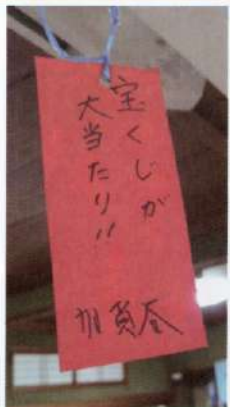 宝くじが
大当たり!!
加賀谷